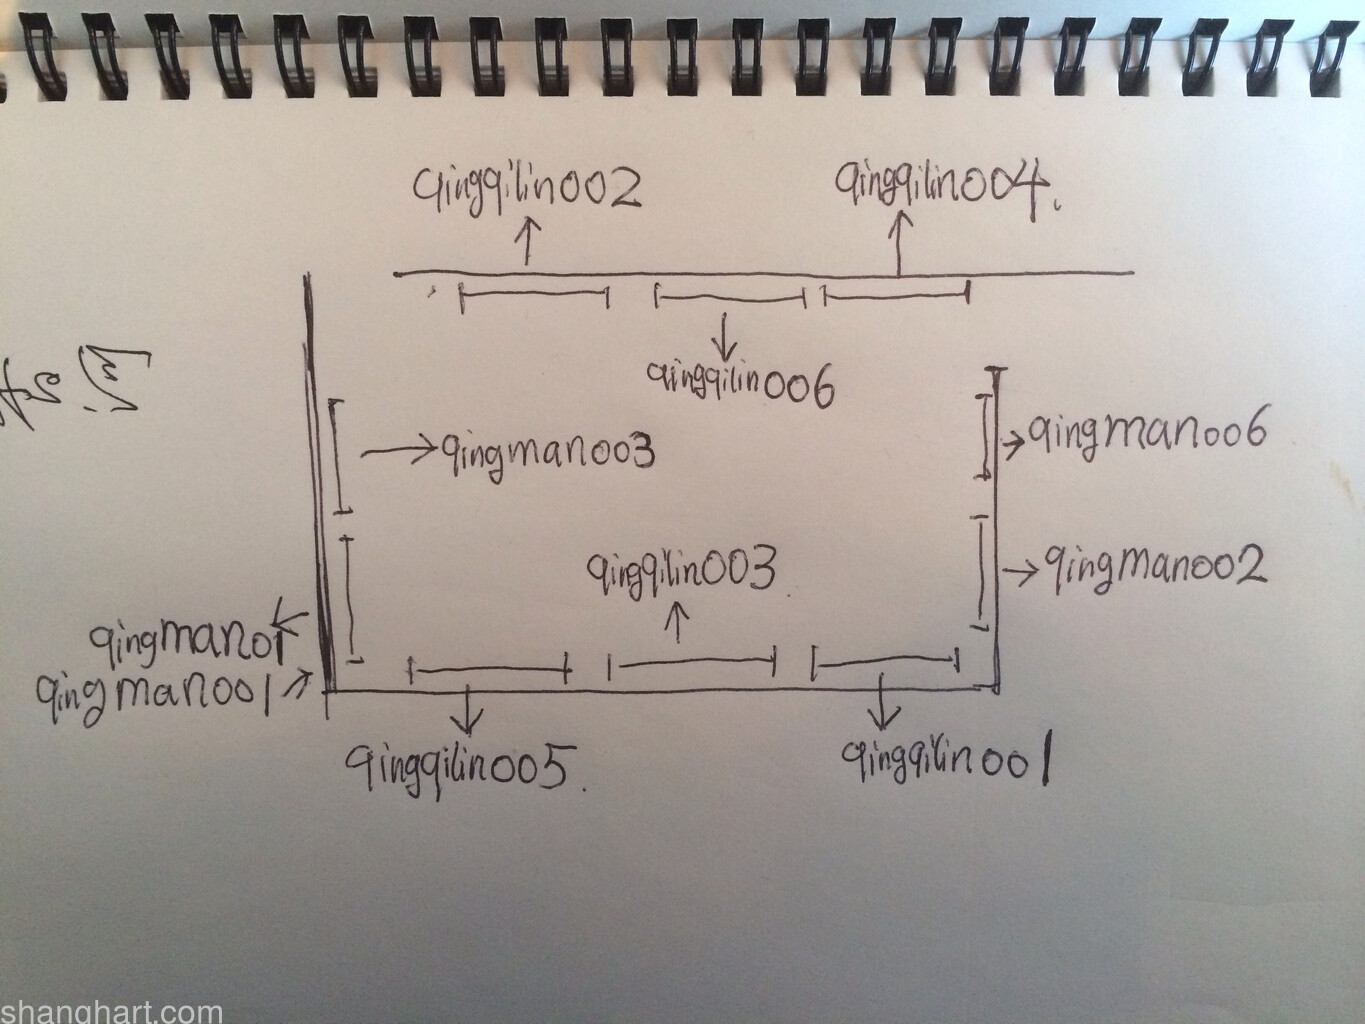 qingqilin002
qingqilin004.
qingqilin006
qingman003
qingman006
qingqilin003
qingman002
qingman01
qingman001
qingqilin005.
qingqilin001
shanghart.com